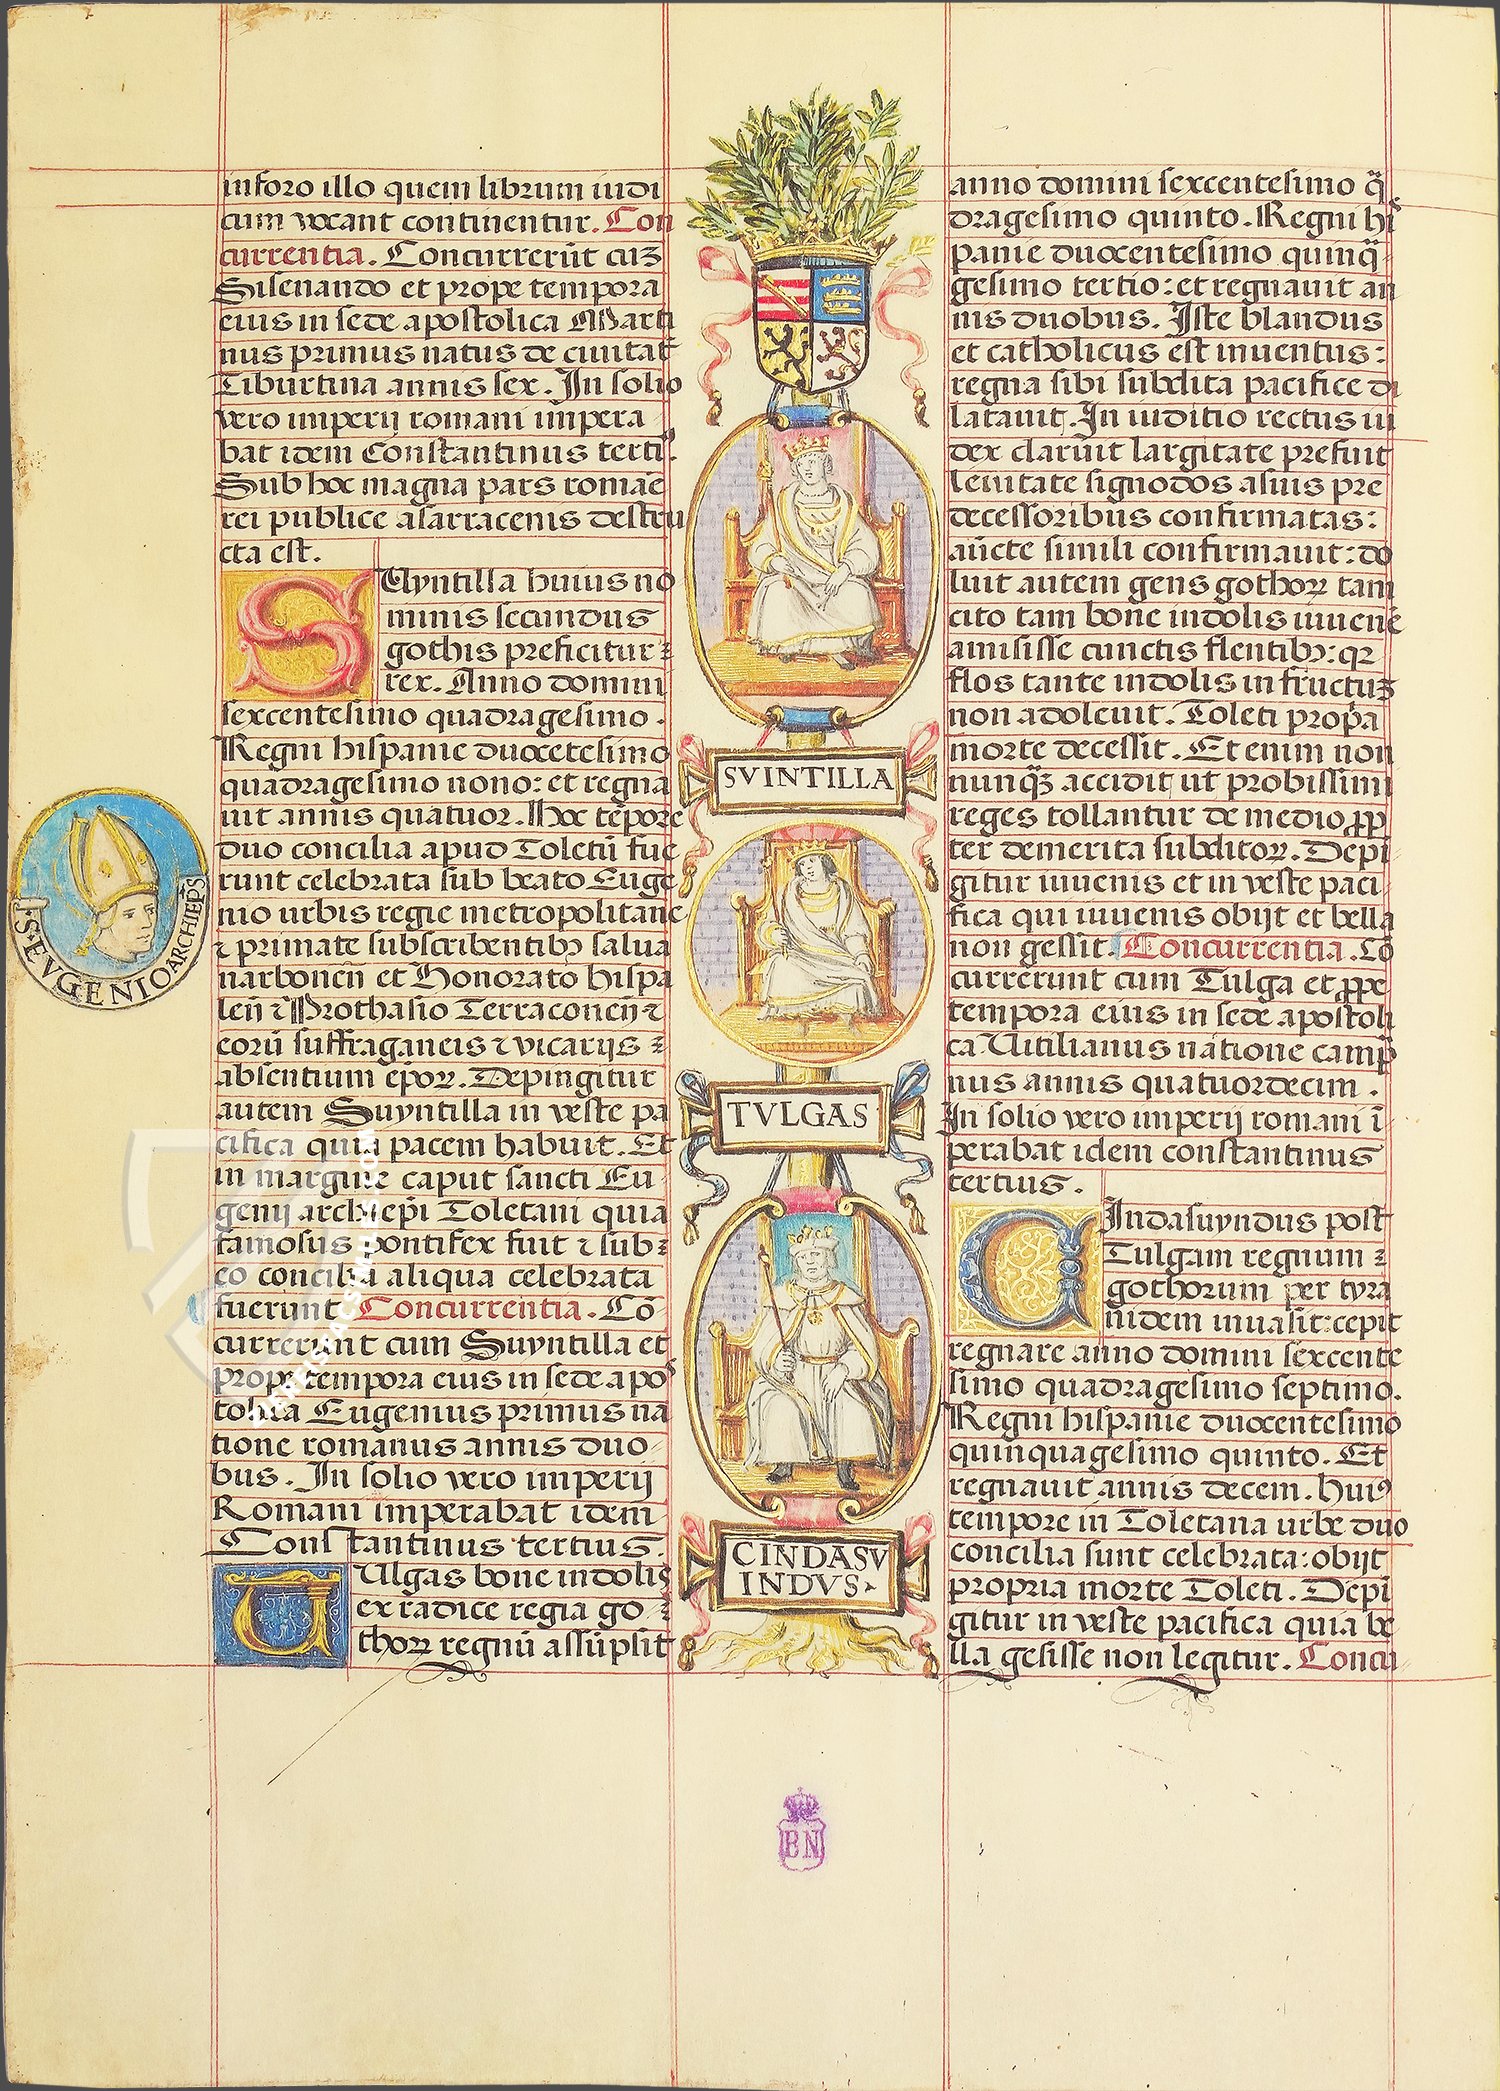 in foro illo quem librum iudi
cum vocant continentur. Con
currentia. Concurrerūt cuz
Sisenando et prope tempora
eius in sede apostolica Marti
nus primus natus de ciuitat̄
Tiburtina annis sex. In solio
vero imperij romani impera
bat idem Constantinus terti᾿.
Sub hoc magna pars romāe
rei publice a sarracenis destru
cta est.
SUyntilla huius no
minis secundus
gothis preficitur
rex. Anno domini
sexcentesimo quadragesimo.
Regni hispanie ducētesimo
quadragesimo nono: et regna
uit annis quatuor. Hoc tēpore
duo concilia apud Toletū fue
runt celebrata sub beato Euge
nio urbis regie metropolitane
⁊ primate subscribentibꝰ salua
narboneñ et Honorato hispa
leñ ⁊ Prothasio Terraconeñ ⁊
eorū suffraganeis ⁊ vicarijs
absentium ep̄oꝝ. Depingitur
autem Suyntilla in veste pa
cifica quia pacem habuit. Et
in margine caput sancti Eu
genij archiep̄i Toletani quia
famosus pontifex fuit ⁊ sub
eo concilia aliqua celebrata
fuerunt Concurrentia. Cō
currerunt cum Suyntilla et
prope tempora eius in sede apo
tolica Eugenius primus na
tione romanus annis duo
bus. In solio vero imperij
Romani imperabat idem
Constantinus tertius.
Ulgas bone indolis
ex radice regia go
thoꝝ regnū assūpsit
S·EVGENIO ARCHIEPS
SVINTILLA
TVLGAS
CINDASV
INDVS
BN
anno domini sexcentesimo q̄
dragesimo quinto. Regni hi᾿
panie ducentesimo quinq̄
gesimo tertio: et regnauit an
nis duobus. Iste blandus
et catholicus est inuentus:
regna sibi subdita pacifice di
latauit. In iuditio rectus iu
dex claruit largitate prefuit
leuitate signodos a suis pre
decessoribus confirmatas:
aūcte simili confirmauit: do
luit autem gens gothoꝝ tam
cito tam bone indolis iuuenē
amisisse cunctis flentibꝰ: qꝛ
flos tante indolis in fructuz
non adoleuit. Toleti propa
morte decessit. Et enim non
nunq̄z accidit ut probissimi
reges tollantur de medio ꝓp
ter demerita subditoꝝ. Depi
gitur iuuenis et in veste paci
fica qui iuuenis obijt et bella
non gessit. Concurrentia. Cō
currerunt cum Tulga et ꝓpe
tempora eius in sede apostoli
ca Uitilianus natione camp̄
nus annis quatuordecim.
In solio vero imperij romani ī
perabat idem constantinus
tertius.
CIndasuyndus post
Tulgam regnum
gothorum per tyra
nidem inuasit: cepit
regnare anno domini sexcente
simo quadragesimo septimo.
Regni hispanie ducentesimo
quinquagesimo quinto. Et
regnauit annis decem. huiꝰ
tempore in Toletana urbe duo
concilia sunt celebrata: obijt
propria morte Toleti. Depi
gitur in veste pacifica quia be
lla gesisse non legitur. Concu